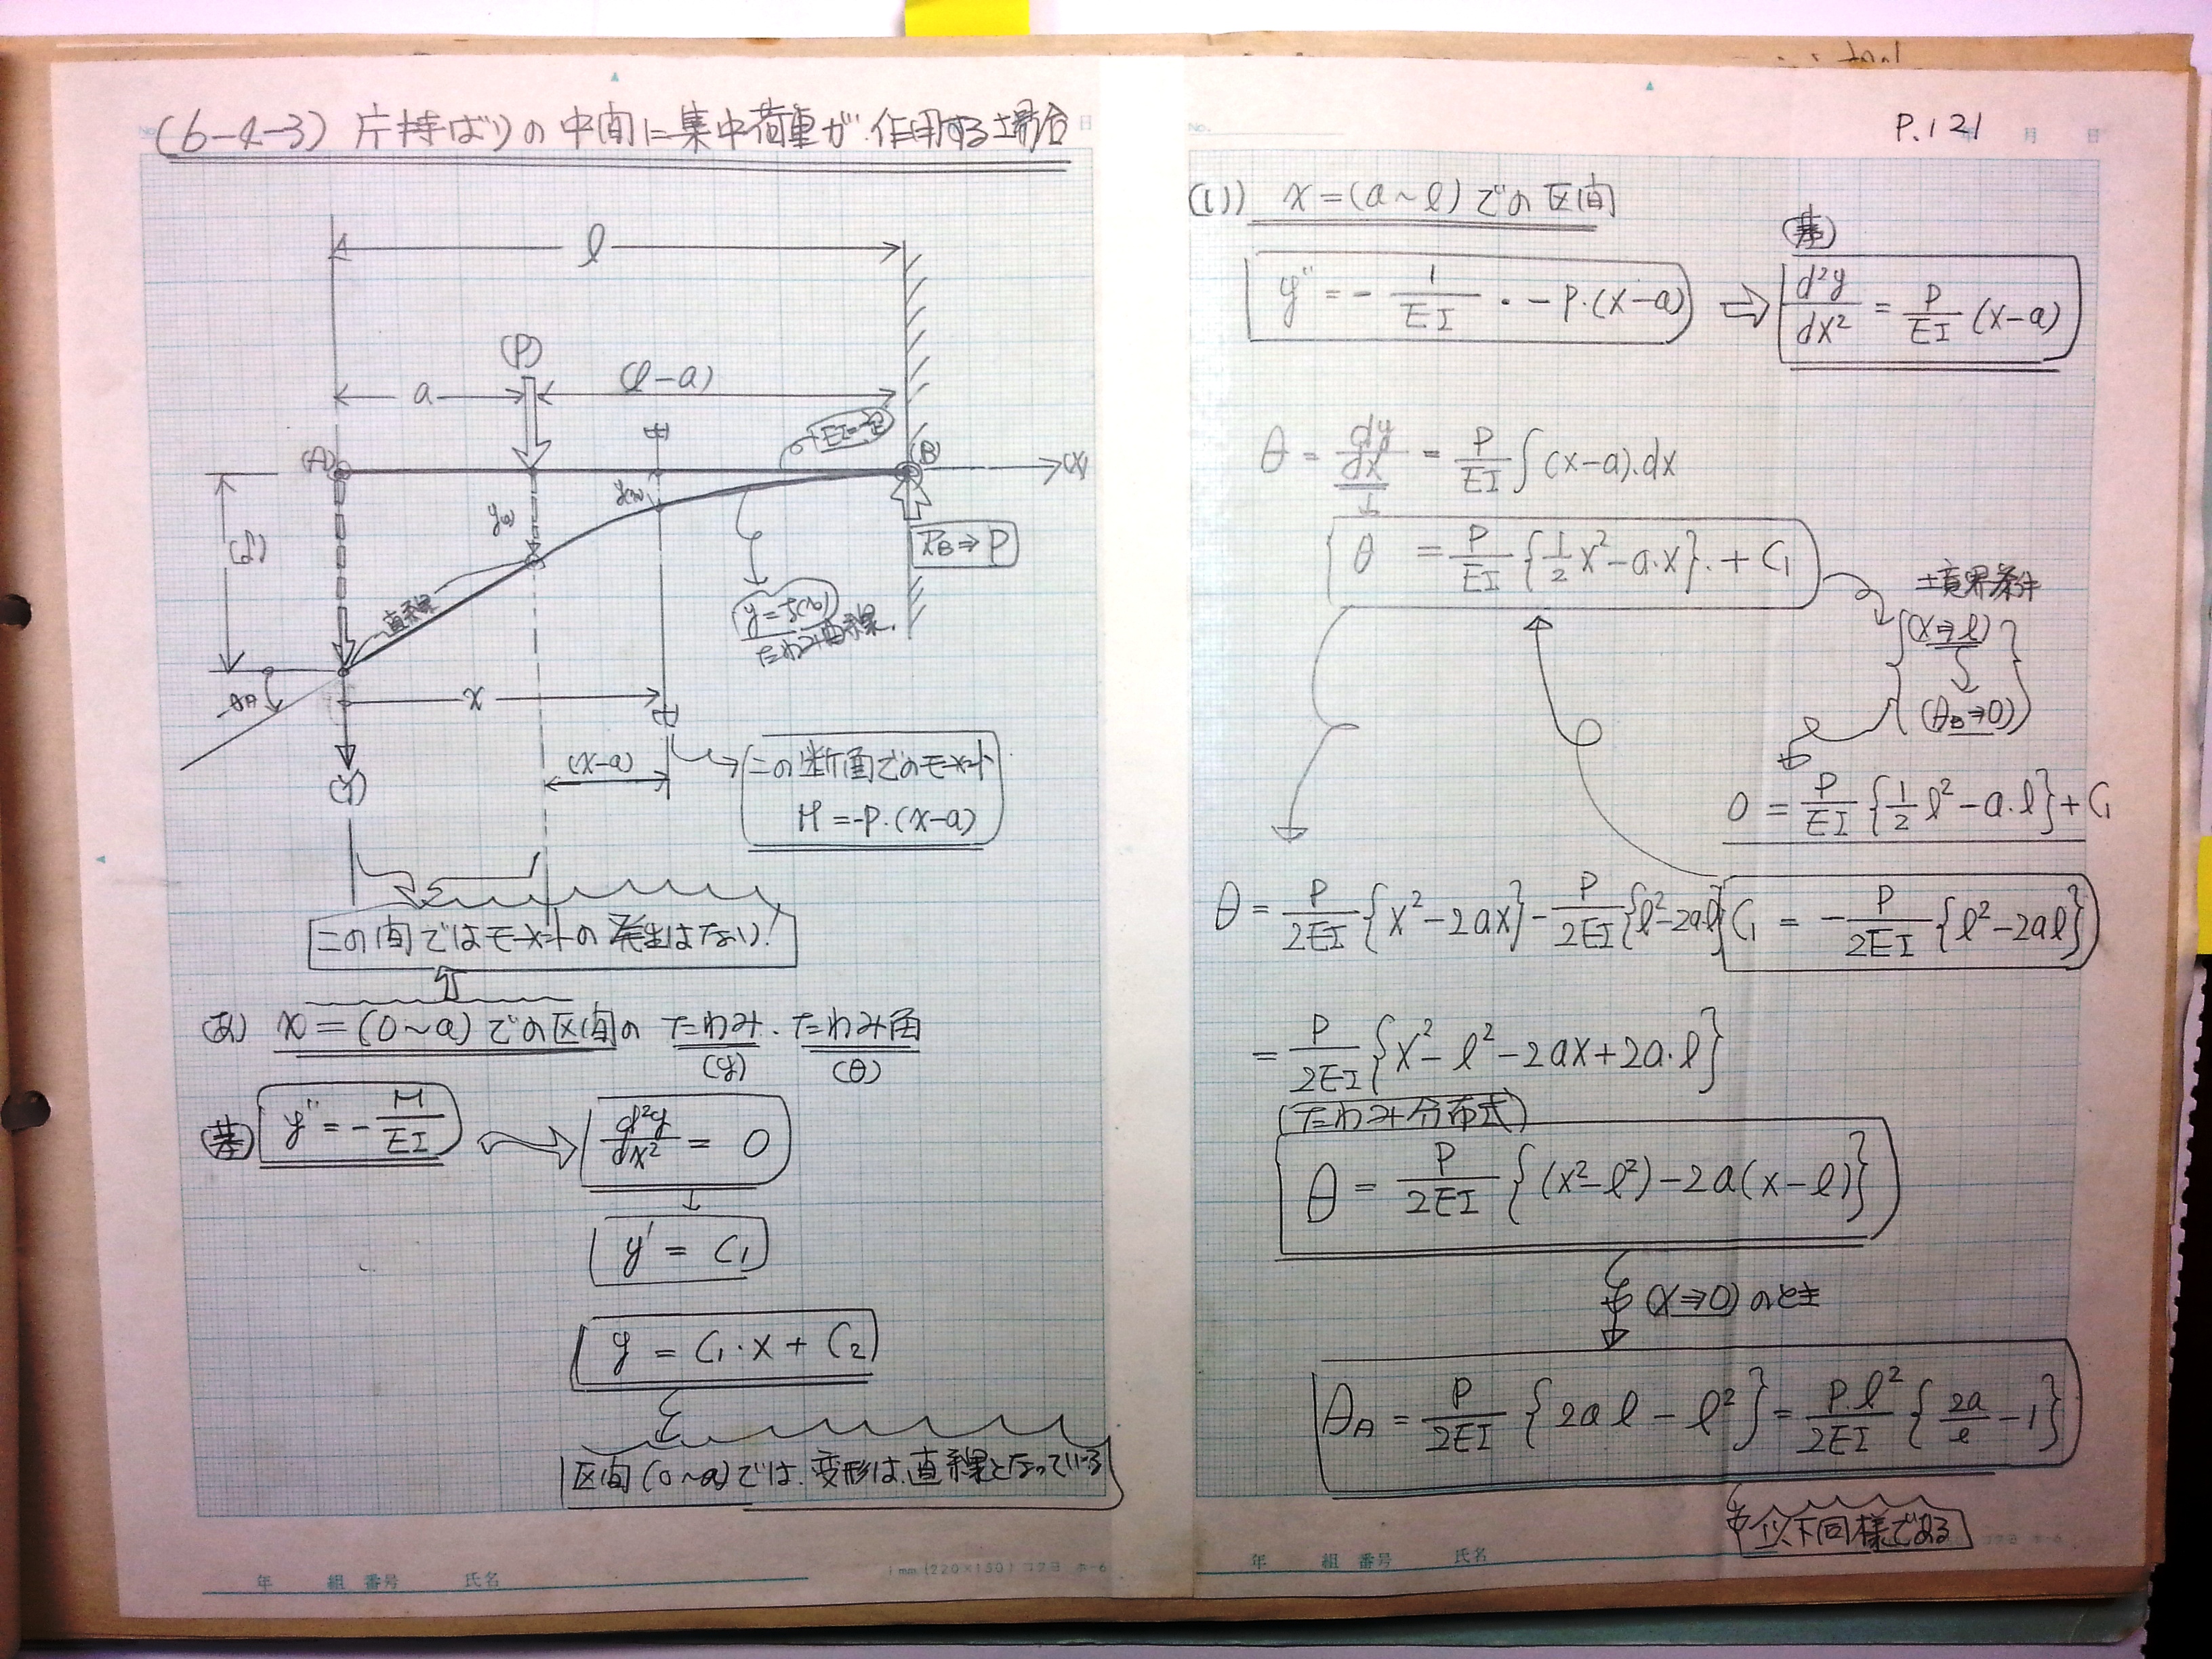 (6-4-3) 片持ばりの中間に集中荷重が作用する場合
l
(P)
a
(l-a)
EI=一定
(A)
(B)
(x)
ya
y(x)
(δ)
RB⇒P
直線
y=f(x)
たわみ曲線
θA
x
(x-a)
(y)
この断面でのモーメント
M=-P.(x-a)
この間ではモーメントの発生はない!
x=(0~a)での区間の たわみ.たわみ角
(y) (θ)
基 y''=-M/EI
d²y/dx² = 0
y' = C1
y = C1・x + C2
区間(0~a)では.変形は.直線となっている
P.121
年 月 日
No.
(1)) x=(a~l)での区間
基
y''=-1/EI・-P.(x-a) ⇒ d²y/dx² = P/EI (x-a)
θ = dy/dx = P/EI ∫(x-a).dx
θ = P/EI {1/2 x²-a.x}.+C1
境界条件
(x⇒l)
(θB⇒0)
0 = P/EI {1/2 l²-a.l}+C1
θ = P/2EI {x²-2ax}-P/2EI {l²-2al}
C1 = -P/2EI {l²-2al}
= P/2EI {x²-l²-2ax+2a.l}
(たわみ分布式)
θ = P/2EI {(x²-l²)-2a(x-l)}
(x⇒0)のとき
θA = P/2EI {2al-l²} = P.l²/2EI {2a/l -1}
以下同様である
年 組 番号 氏名
1mm(220×150) コクヨ ホ-6
年 組 番号 氏名